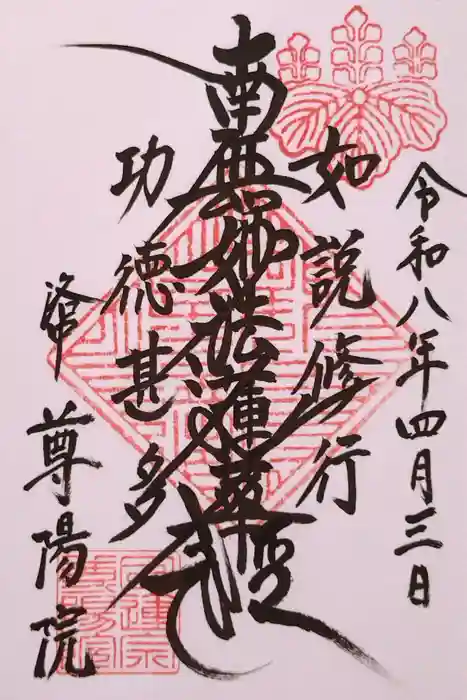 令和八年四月三日
如説修行
南無妙法蓮華經
功徳甚多
洛中 尊陽院
日蓮宗